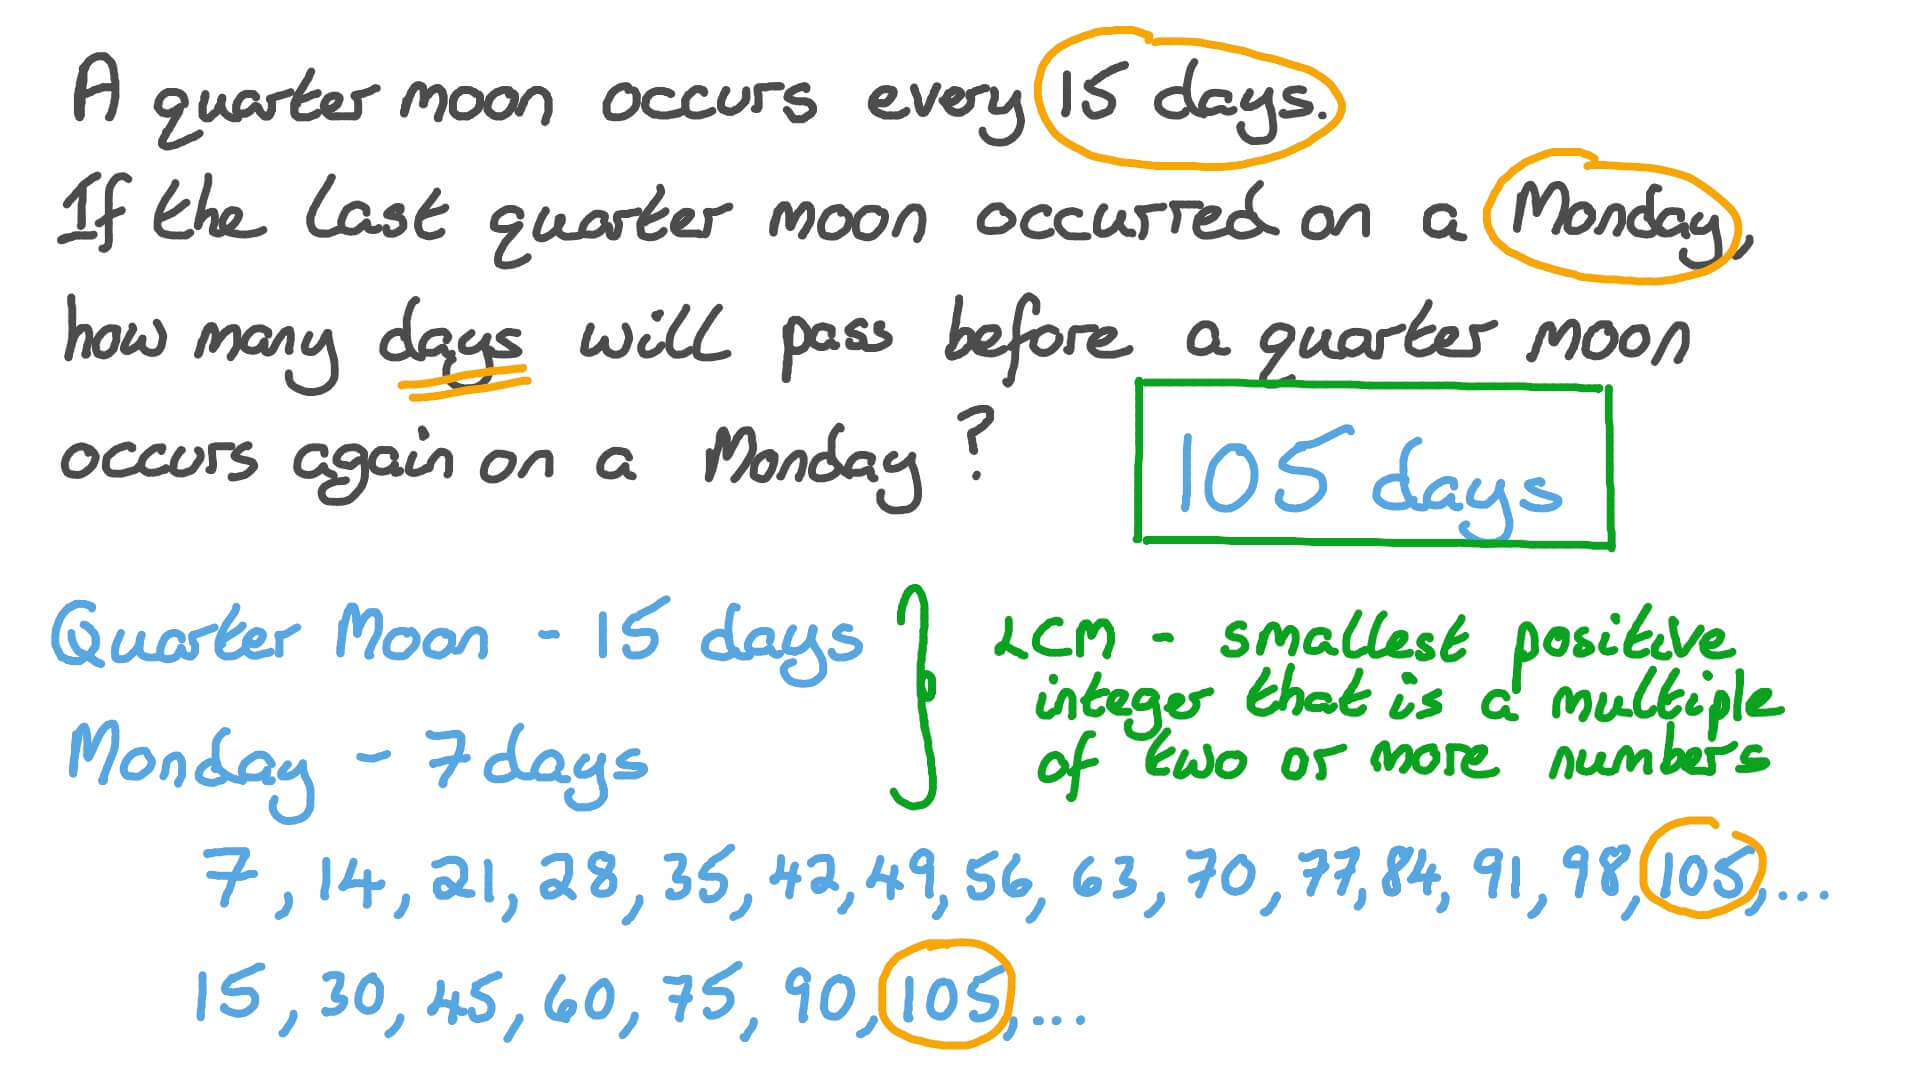 A quarter moon occurs every 15 days.
If the last quarter moon occurred on a Monday,
how many days will pass before a quarter moon
occurs again on a Monday?
105 days
Quarter Moon - 15 days
Monday - 7 days
LCM - smallest positive
integer that is a multiple
of two or more numbers
7, 14, 21, 28, 35, 42, 49, 56, 63, 70, 77, 84, 91, 98, 105, ...
15, 30, 45, 60, 75, 90, 105, ...